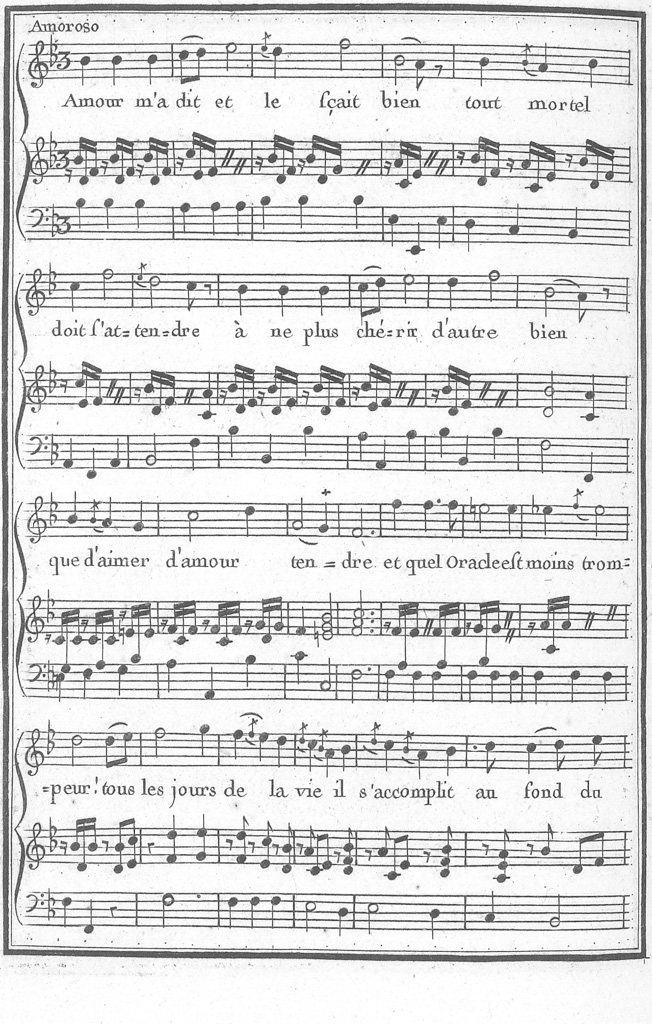 Amoroso
Amour m'a dit et le sçait bien tout mortel
doit s'at=ten=dre à ne plus ché=rir d'autre bien
que d'aimer d'amour ten=dre et quel Oracle est moins trom=
=peur! tous les jours de la vie il s'accomplit au fond du